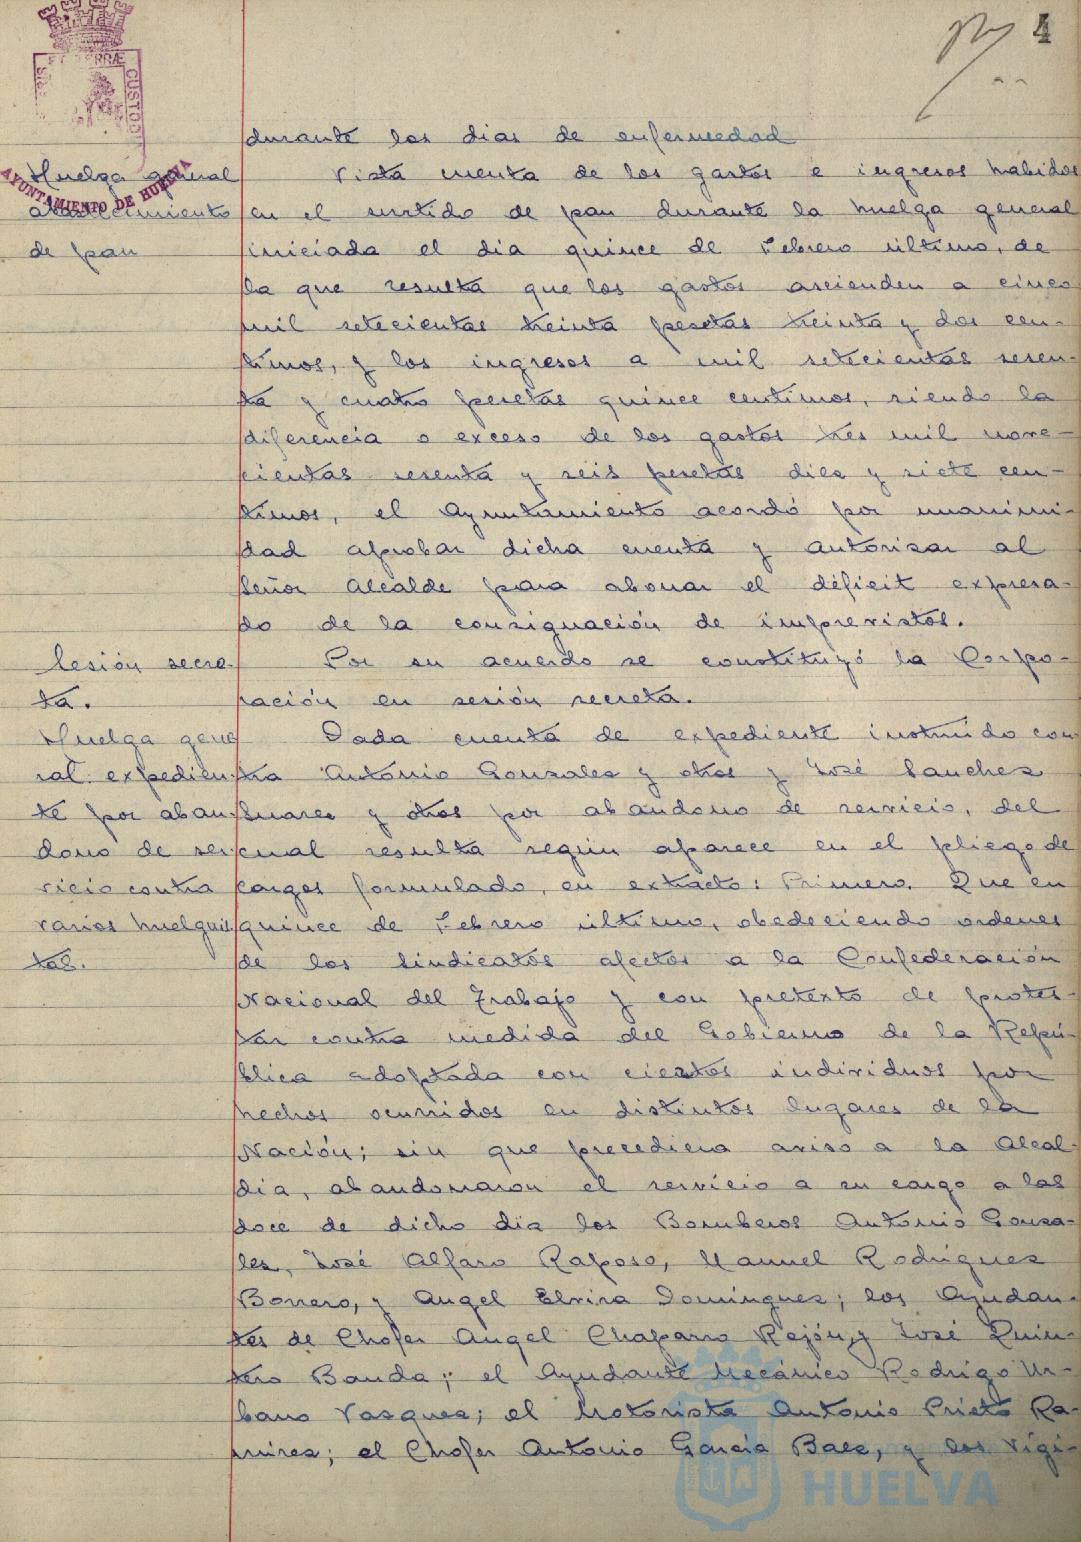 4
ET TERRÆ
CUSTOD
AYUNTAMIENTO DE HUELVA
durante los dias de enfermedad
Huelga general
abastecimiento
de pan
Vista cuenta de los gastos e ingresos habidos
en el surtido de pan durante la huelga general
iniciada el dia quince de Febrero último, de
la que resulta que los gastos ascienden a cinco
mil setecientas treinta pesetas treinta y dos cen-
timos, y los ingresos a mil setecientas sesen-
ta y cuatro pesetas quince centimos, siendo la
diferencia o exceso de los gastos tres mil nove-
cientas sesenta y seis pesetas diez y siete cen-
timos, el Ayuntamiento acordó por unanimi-
dad aprobar dicha cuenta y autorizar al
Señor Alcalde para abonar el déficit expresa-
do de la consignación de imprevistos.
Sesión secre-
ta.
Por su acuerdo se constituyó la Corpo-
ración en sesión secreta.
Huelga gene
ral: expedien-
te por aban-
dono de ser-
vicio contra
varios huelguis
tas.
Dada cuenta de expediente instruido con
tra Antonio Gonzalez y otros y José Sanchez
Suarez y otros por abandono de servicio, del
cual resulta según aparece en el pliego de
cargos formulado, en extracto: Primero. Que en
quince de Febrero último, obedeciendo ordenes
de los Sindicatos afectos a la Confederación
Nacional del Trabajo y con pretexto de protes-
tar contra medida del Gobierno de la Repú-
blica adoptada con ciertos individuos por
hechos ocurridos en distintos lugares de la
Nación; sin que precediera aviso a la Alcal-
dia, abandonaron el servicio a su cargo a las
doce de dicho dia los Bomberos Antonio Gonza-
lez, José Alfaro Raposo, Manuel Rodriguez
Borrero, y Angel Elvira Dominguez; los Ayudan-
tes de Chofer Angel Chaparro Rejón y José Quin-
tero Banda; el Ayudante Mecánico Rodrigo Ur-
bano Vasquez; el Motorista Antonio Prieto Ra-
mirez; el Chofer Antonio Garcia Baez, y los Vigi-
HUELVA